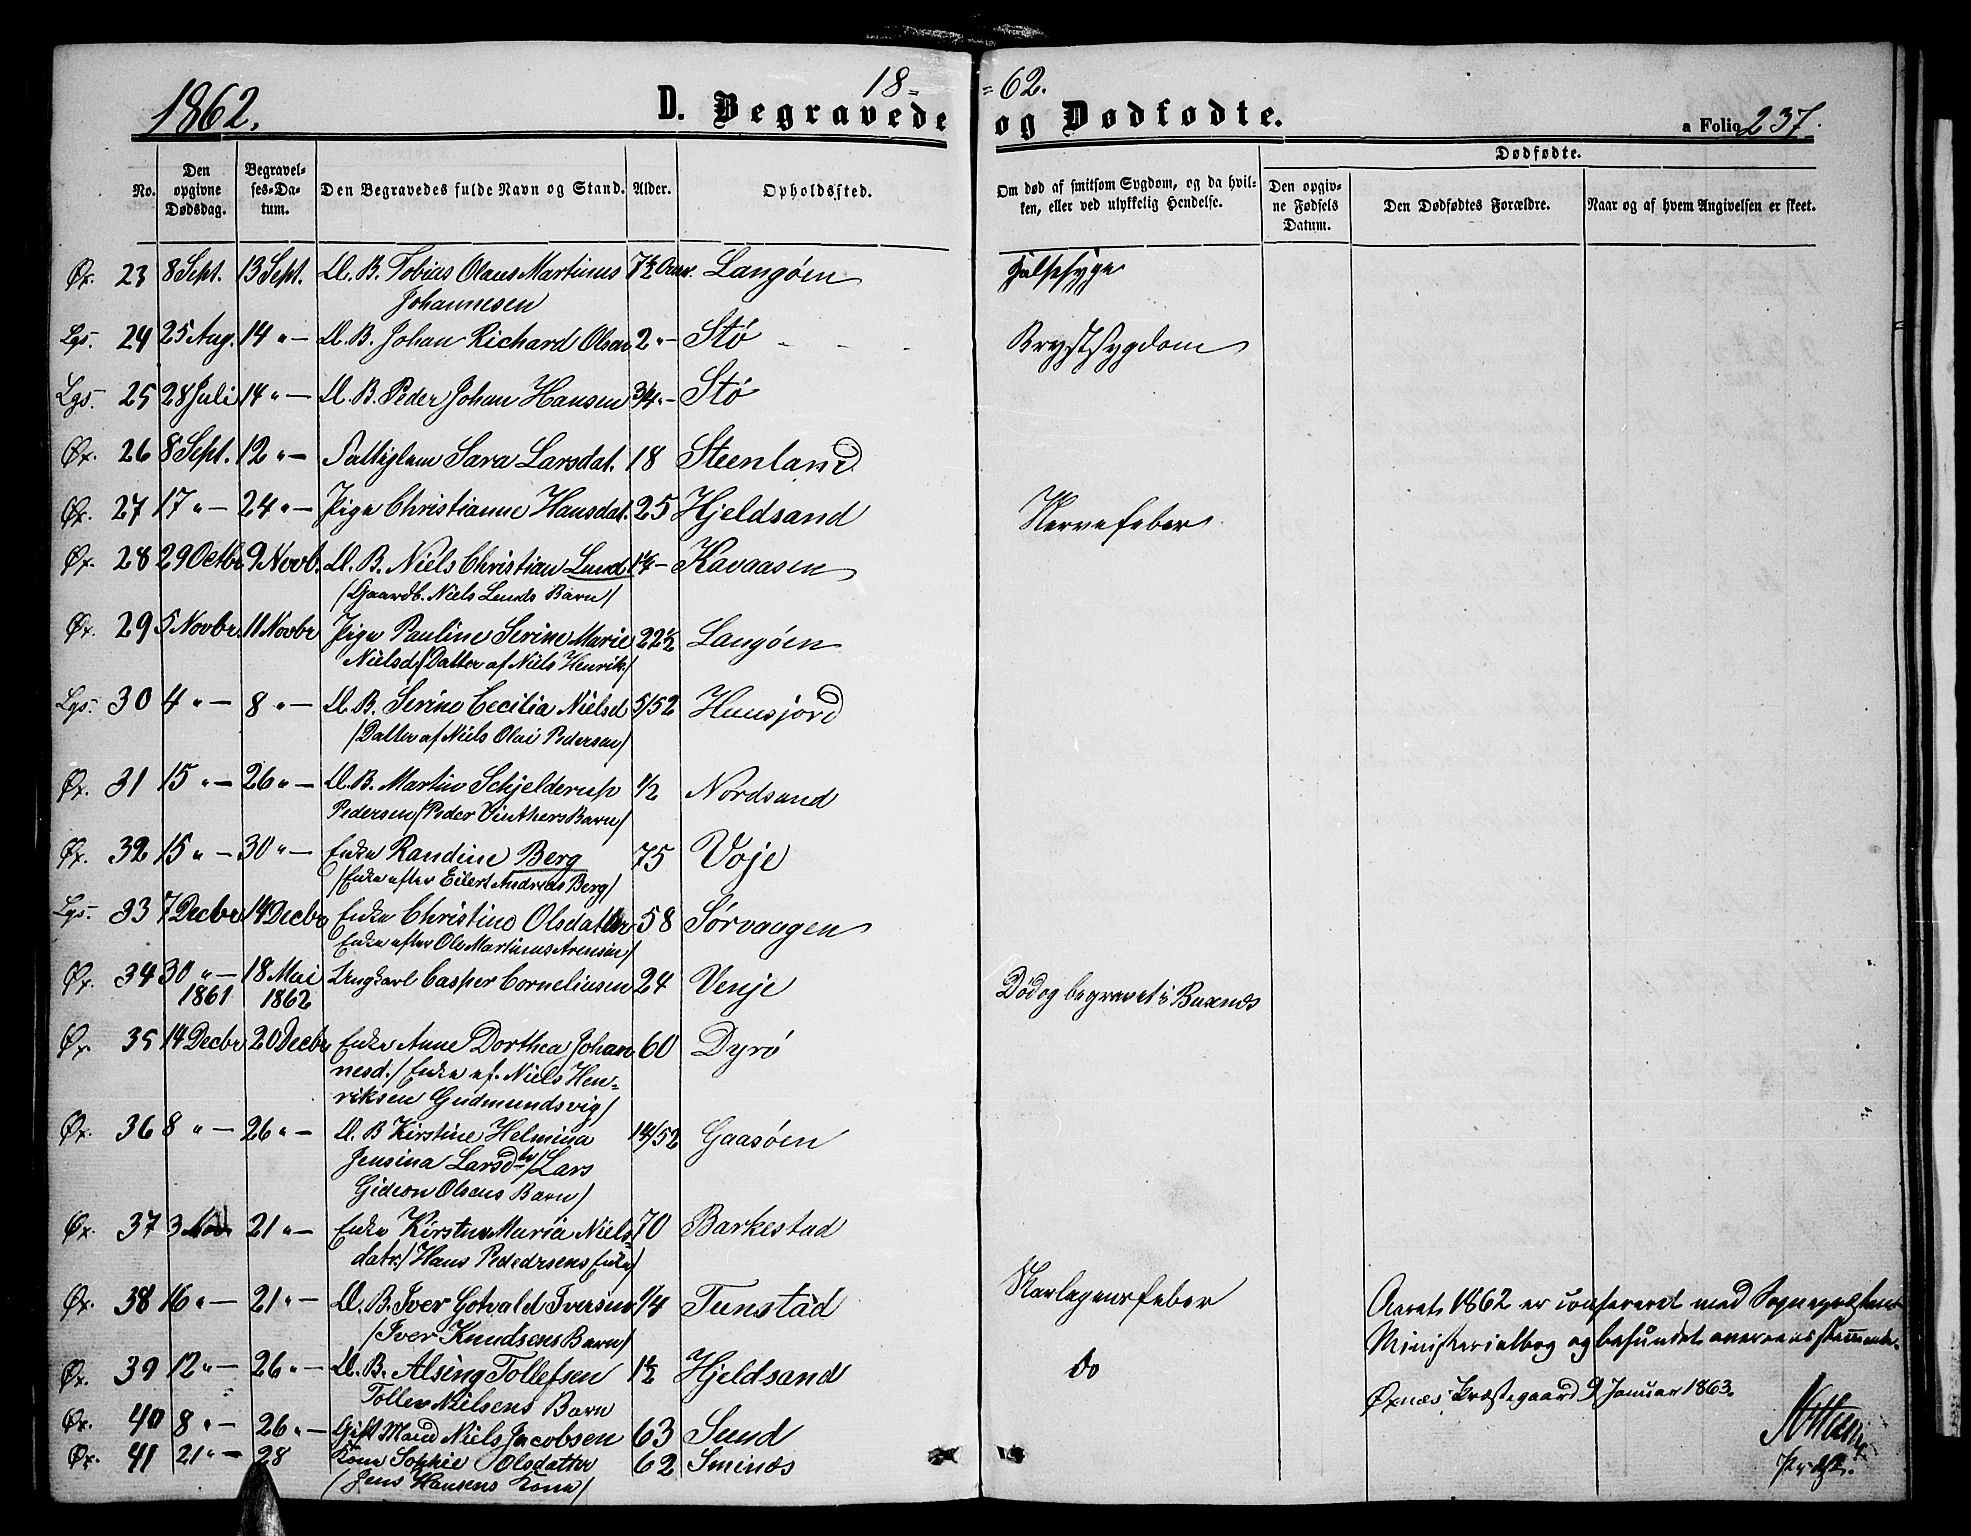 1862.
D. Begravede
18 =
= 62.
og Dødfødte.
a Folio 237.
No.
Den opgivne Dødsdag.
Begravelses-Datum.
Den Begravedes fulde Navn og Stand.
Alder.
Opholdssted.
Om død af smitsom Sygdom, og da hvilken, eller ved ulykkelig Hendelse.
Dødfødte.
Den opgivne Fødsels Datum.
Den Dødfødtes Forældre.
Naar og af hvem Angivelsen er skeet.
Øx. 23 8 Sept. 13 Sept. U. B. Tobias Olaus Martinus 7½ Langøen Halssyge
Johannesen
Lgs. 24 25 Aug. 14 " – U. B. Johan Richard Olsen 2 " – Stø Brystsygdom
Lgs. 25 28 Juli 14 " – U. B. Peder Johan Hansen 3/4 " – Stø
Øx. 26 8 Sept. 12 " – Fattiglem Sara Larsdat. 18 Steenland
Øx. 27 17 " – 24 " – Pige Christianne Hansdat. 25 Hjeldsand Nervefeber
Øx. 28 29 Octbr 9 Novb. U. B. Niels Christian Lund 1¼ – Kavaasen
/Gaardb. Niels Lunds Barn/
Øx. 29 5 Novbr 11 Novbr Pige Pauline Serine Marie 22½ Langøen
Nielsd /Datter af Niels Henrik./
Lgs. 30 4 " – 8 " – U. B. Serine Cecilia Nielsd 5/52 Hunsjord
/Datter af Niels Olai Pedersen/
Øx. 31 15 " – 26 " – U. B. Martin Schjelderup ½ Nordsand
Pedersen /Peder Vinthers Barn/
Øx. 32 15 " – 30 " – Enke Randine Berg 75 Voje
/Enke efter Eilert Andreas Berg/
Lgs. 33 7 Decbr 14 Decbr Enke Christine Olsdatter 58 Sørvaagen
Enke efter Ole Martinus Arensen/
Øx. 34 30 " – 18 Mai Ungkarl Casper Corneliusen 24 Venje Død og begravet i Buxnæs
1861 1862
Øx. 35 14 Decbr 20 Decbr Enke Anne Dorthea Johan 60 Dyrø
nesd. /Enke af. Niels Hen=
riksen Gudmundsvig/
Øx. 36 8 " – 26 " – U. B Kirstine Helmina 14/52 Gaasøen
Jensina Larsdtr /Lars
Gideon Olsens Barn/
Øx. 37 3 Nov 21 " – Enke Kirstne Maria Niels 70 Barkestad
datr. /Hans Pedersens Enke/
Øx. 38 16 " – 21 " – U. B. Iver Gotvald Iversen ¼ Tunstad Skarlagensfeber
/Iver Knudsens Barn/
Øx. 39 12 " – 26 " – U. B. Alsing Tollefsen 1½ Hjeldsand do
Tollev Nielsens Barn
Øx. 40 8 " – 26 " – Gift Mand Niels Jacobsen 63 Sund
Øx. 41 21 " – 28 Kone Sophie Olsdatter 62 Sminæs
/Jens Hansens Kone/
Aaret 1862 er confereret med Sognepræstens
Ministerialbog og befundet overensstemmende.
Øxnæs Præstegaard 9 Januar 1863.